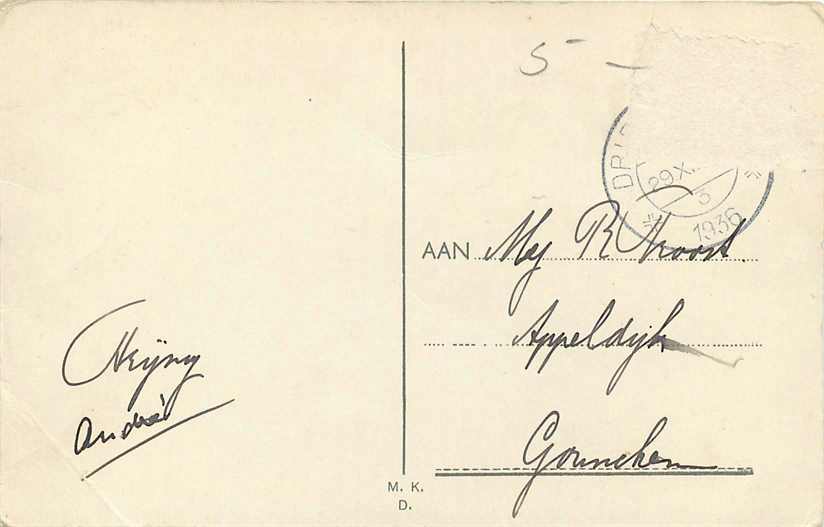 5 –
DRIE
29 X
3
1936
AAN Mej R Troost.
Appeldijk
Gorinchem
Heijny
André
M. K.
D.